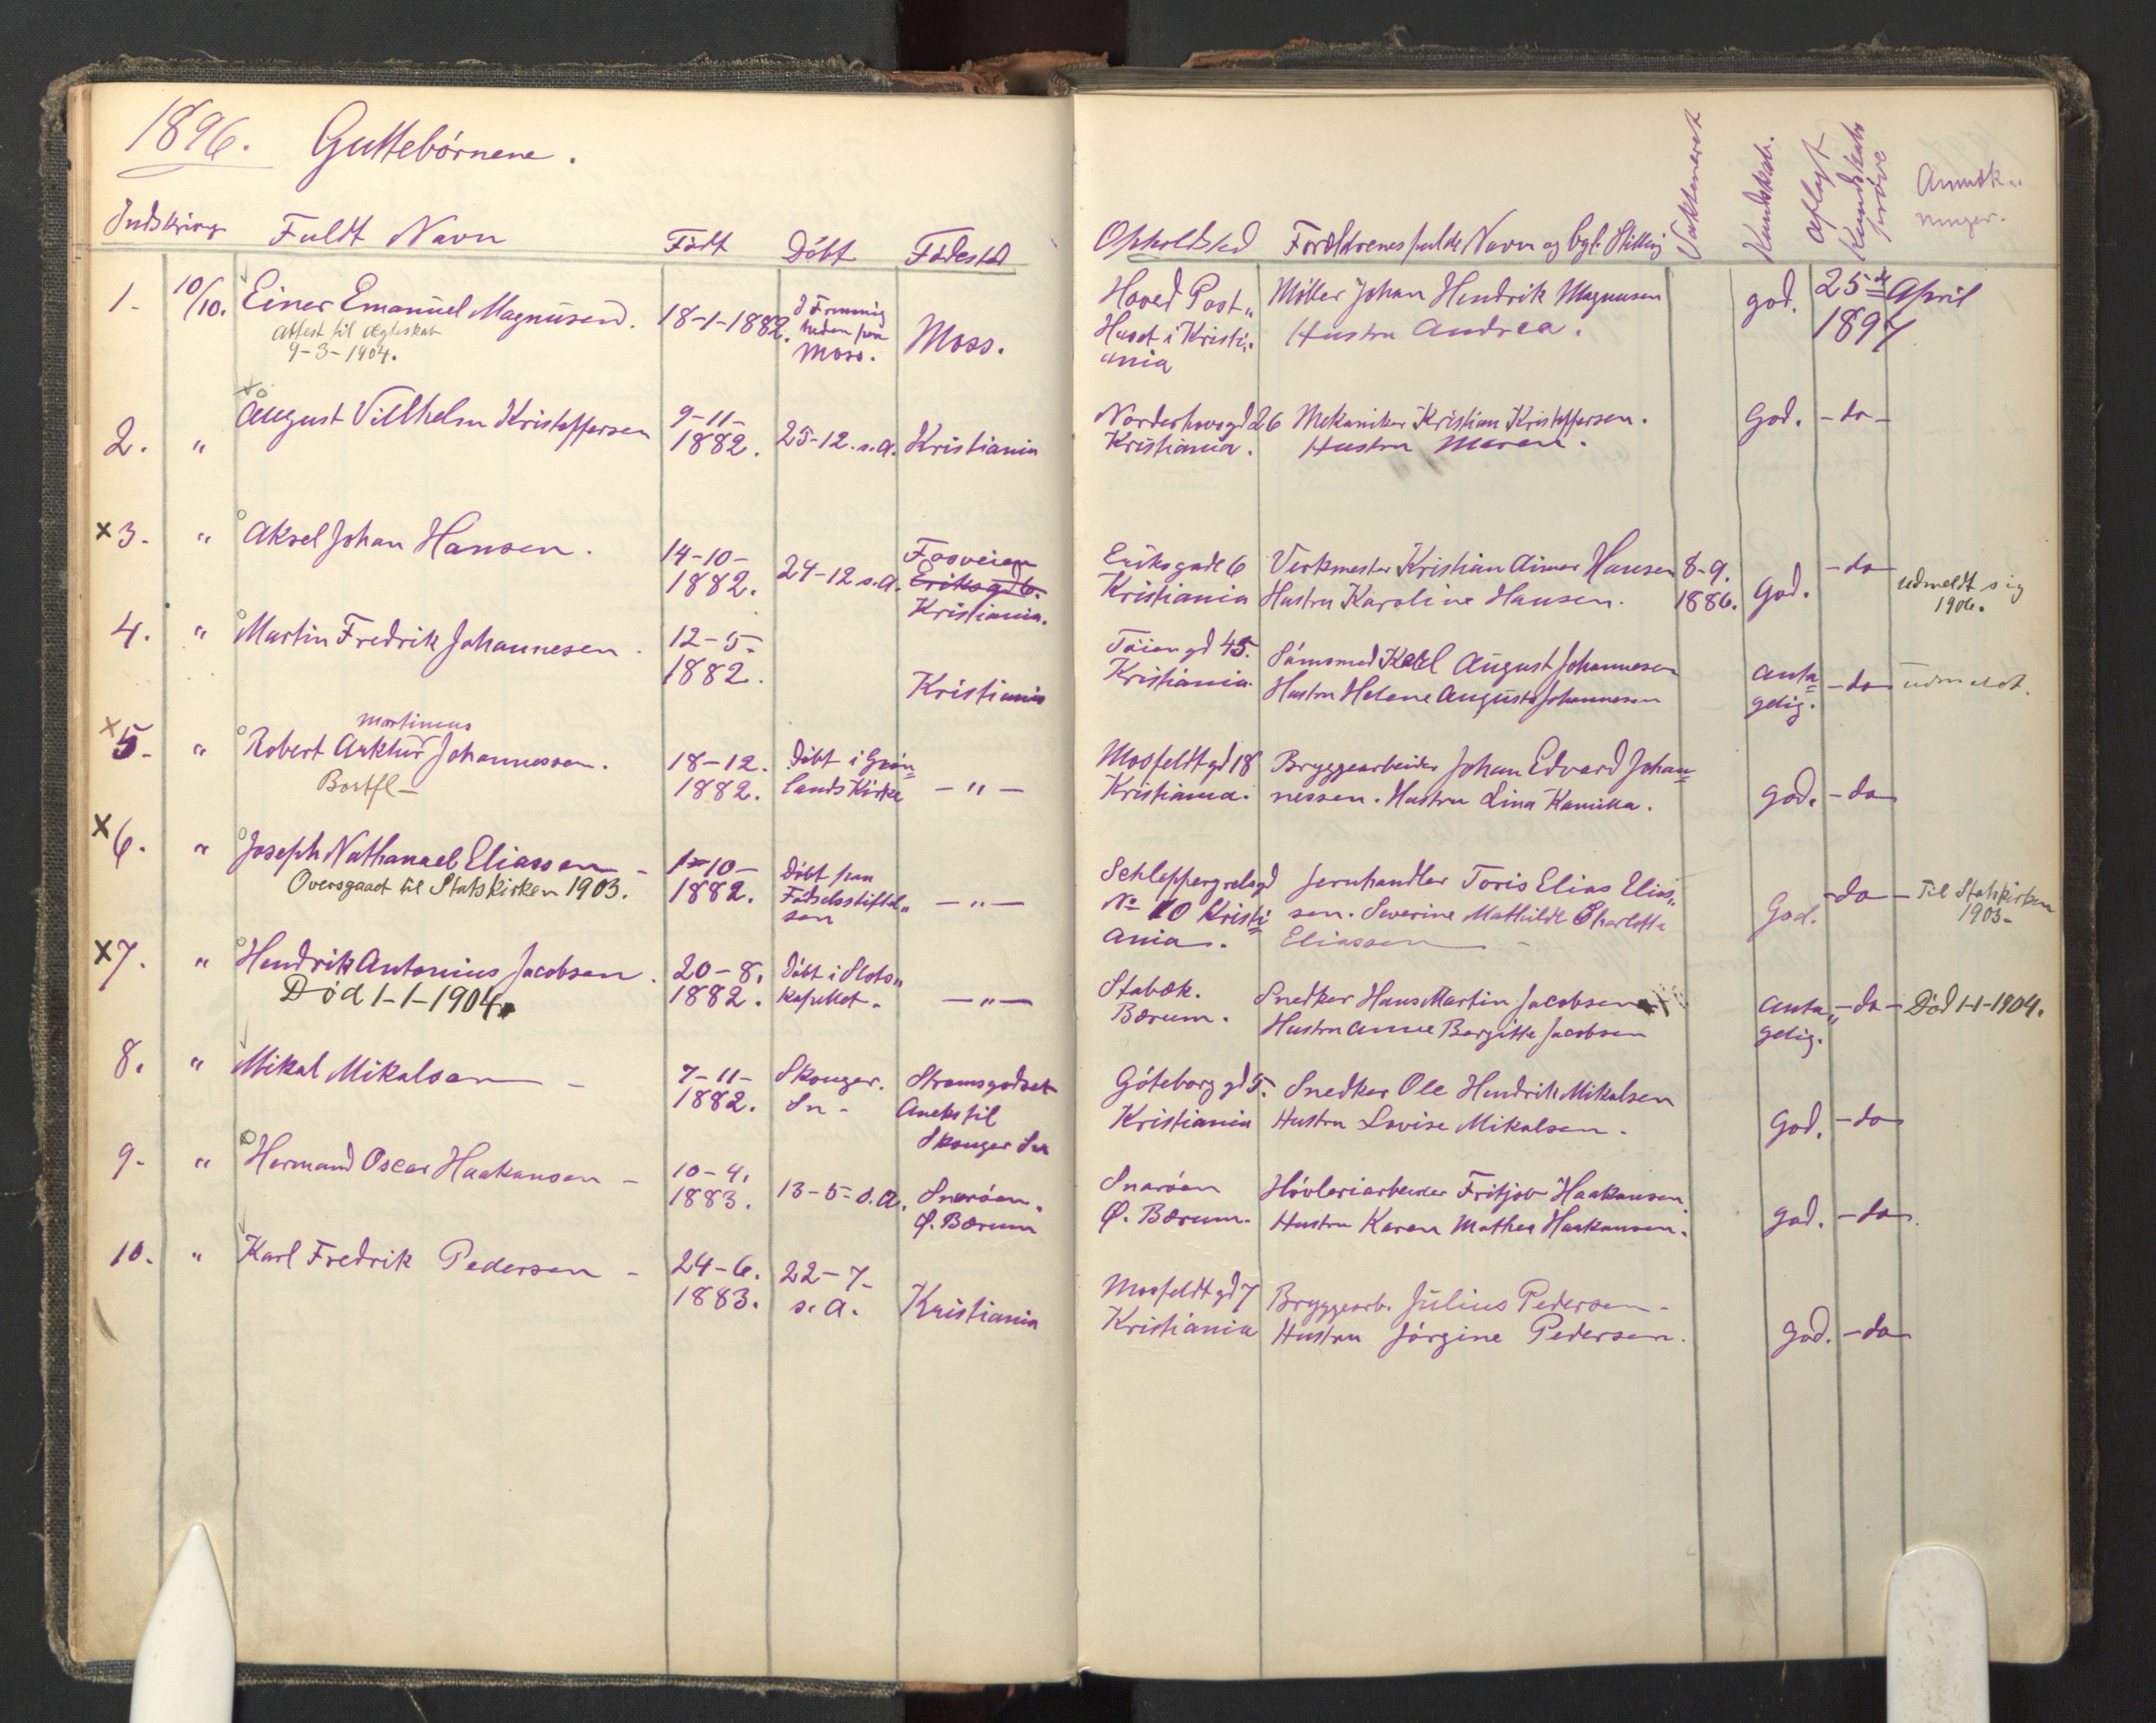 1896. Guttebørnene.
Indskriv Fuldt Navn Født Døbt Fødested
1. 10/10. Einer Emanuel Magnusen. 18-1-1882. Moss. Moss.
attest til ægteskab
9-3-1904.
2. " August Villhelm Kristoffersen 9-11-1882. 25-12. s.a. Kristiania
x3. " Aksel Johan Hansen. 14-10-1882. 24-12 s.a. Fosveien
Eriksgd 6.
Kristiania.
4. " Martin Fredrik Johannesen. 12-5-1882. Kristiania
martineus
x5. " Robert Arthur Johannessen. 18-12. 1882. Døbt i Grøn=
lands Kirke -"-
Bortfl-
x6. " Joseph Nathanael Eliassen - 1-10-1882. Døbt paa
Fødselsstiftel"
sen -"-
Oversgaaet til Statskirken 1903.
x7. " Hendrik Antonius Jacobsen. 20-8. 1882. Døbt i Slots"
kapellet. -"-
Død 1-1-1904.
8. " Mikal Mikalsen - 7-11-1882. Skouger.
Sn - Strømsgodset
Aneks til
Skouger Sn
9. " Hermand Oscar Haakansen - 10-4. 1883. 13-5-s.a. Snarøen.
Ø. Bærum
10. " Karl Fredrik Pedersen - 24-6. 1883. 22-7-
s.a. Kristiania
Opholdsted Forældrenes fulde Navn og bgl. Stilling Vaksineret Kundskab. Aflagt Kundskabs prøve Anmærk"
ninger.
Hoved Post"
Huset i Kristi"
ania Møller Johan Hendrik Magnusen
Hustru Andrea. god. 25de April
1897
Norderhovsgd 26
Kristiania. Mekaniker Kristian Kristoffersen.
Hustru Maren. God. -do-
Eriksgade 6
Kristiania Verkmester Kristian Aimar Hansen
Hustru Karoline Hansen. 8-9.
1886. God. -do- udmeldt sig
1906.
Tøiengd 45.
Kristiania. Karl August Johannesen
Hustru Helene Augusta Johannesen anta=
gelig. -do- udmeldt.
Mosfeldtgd 18
Kristiania. Bryggearbeider Johan Edvard Johan=
nessen. Hustru Lina Kamilla. god. -do-
Schleppergrelsgd
No 10 Kristi=
ania. Jernhandler Toris Elias Elias"
sen. Severine Mathilde Charlotta
Eliassen - God. -do- Til Statskirken
1903-
Stabæk.
Bærum. Snedker Hans Martin Jacobsen
Hustru Anne Bergitte Jacobsen anta"
gelig. -do- Død 1-1-1904.
Göteborg gd 5.
Kristiania Snedker Ole Hendrik Mikalsen
Hustru Lovise Mikalsen. God. -do-
Snarøen
Ø. Bærum. Høvleriarbeider Fritjov Haakansen.
Hustru Karen Mathea Haakansen. god. -do-
Mosfeldtgd 7
Kristiania Bryggearb. Julius Pedersen -
Hustru Jørgine Pedersen. god. -do-